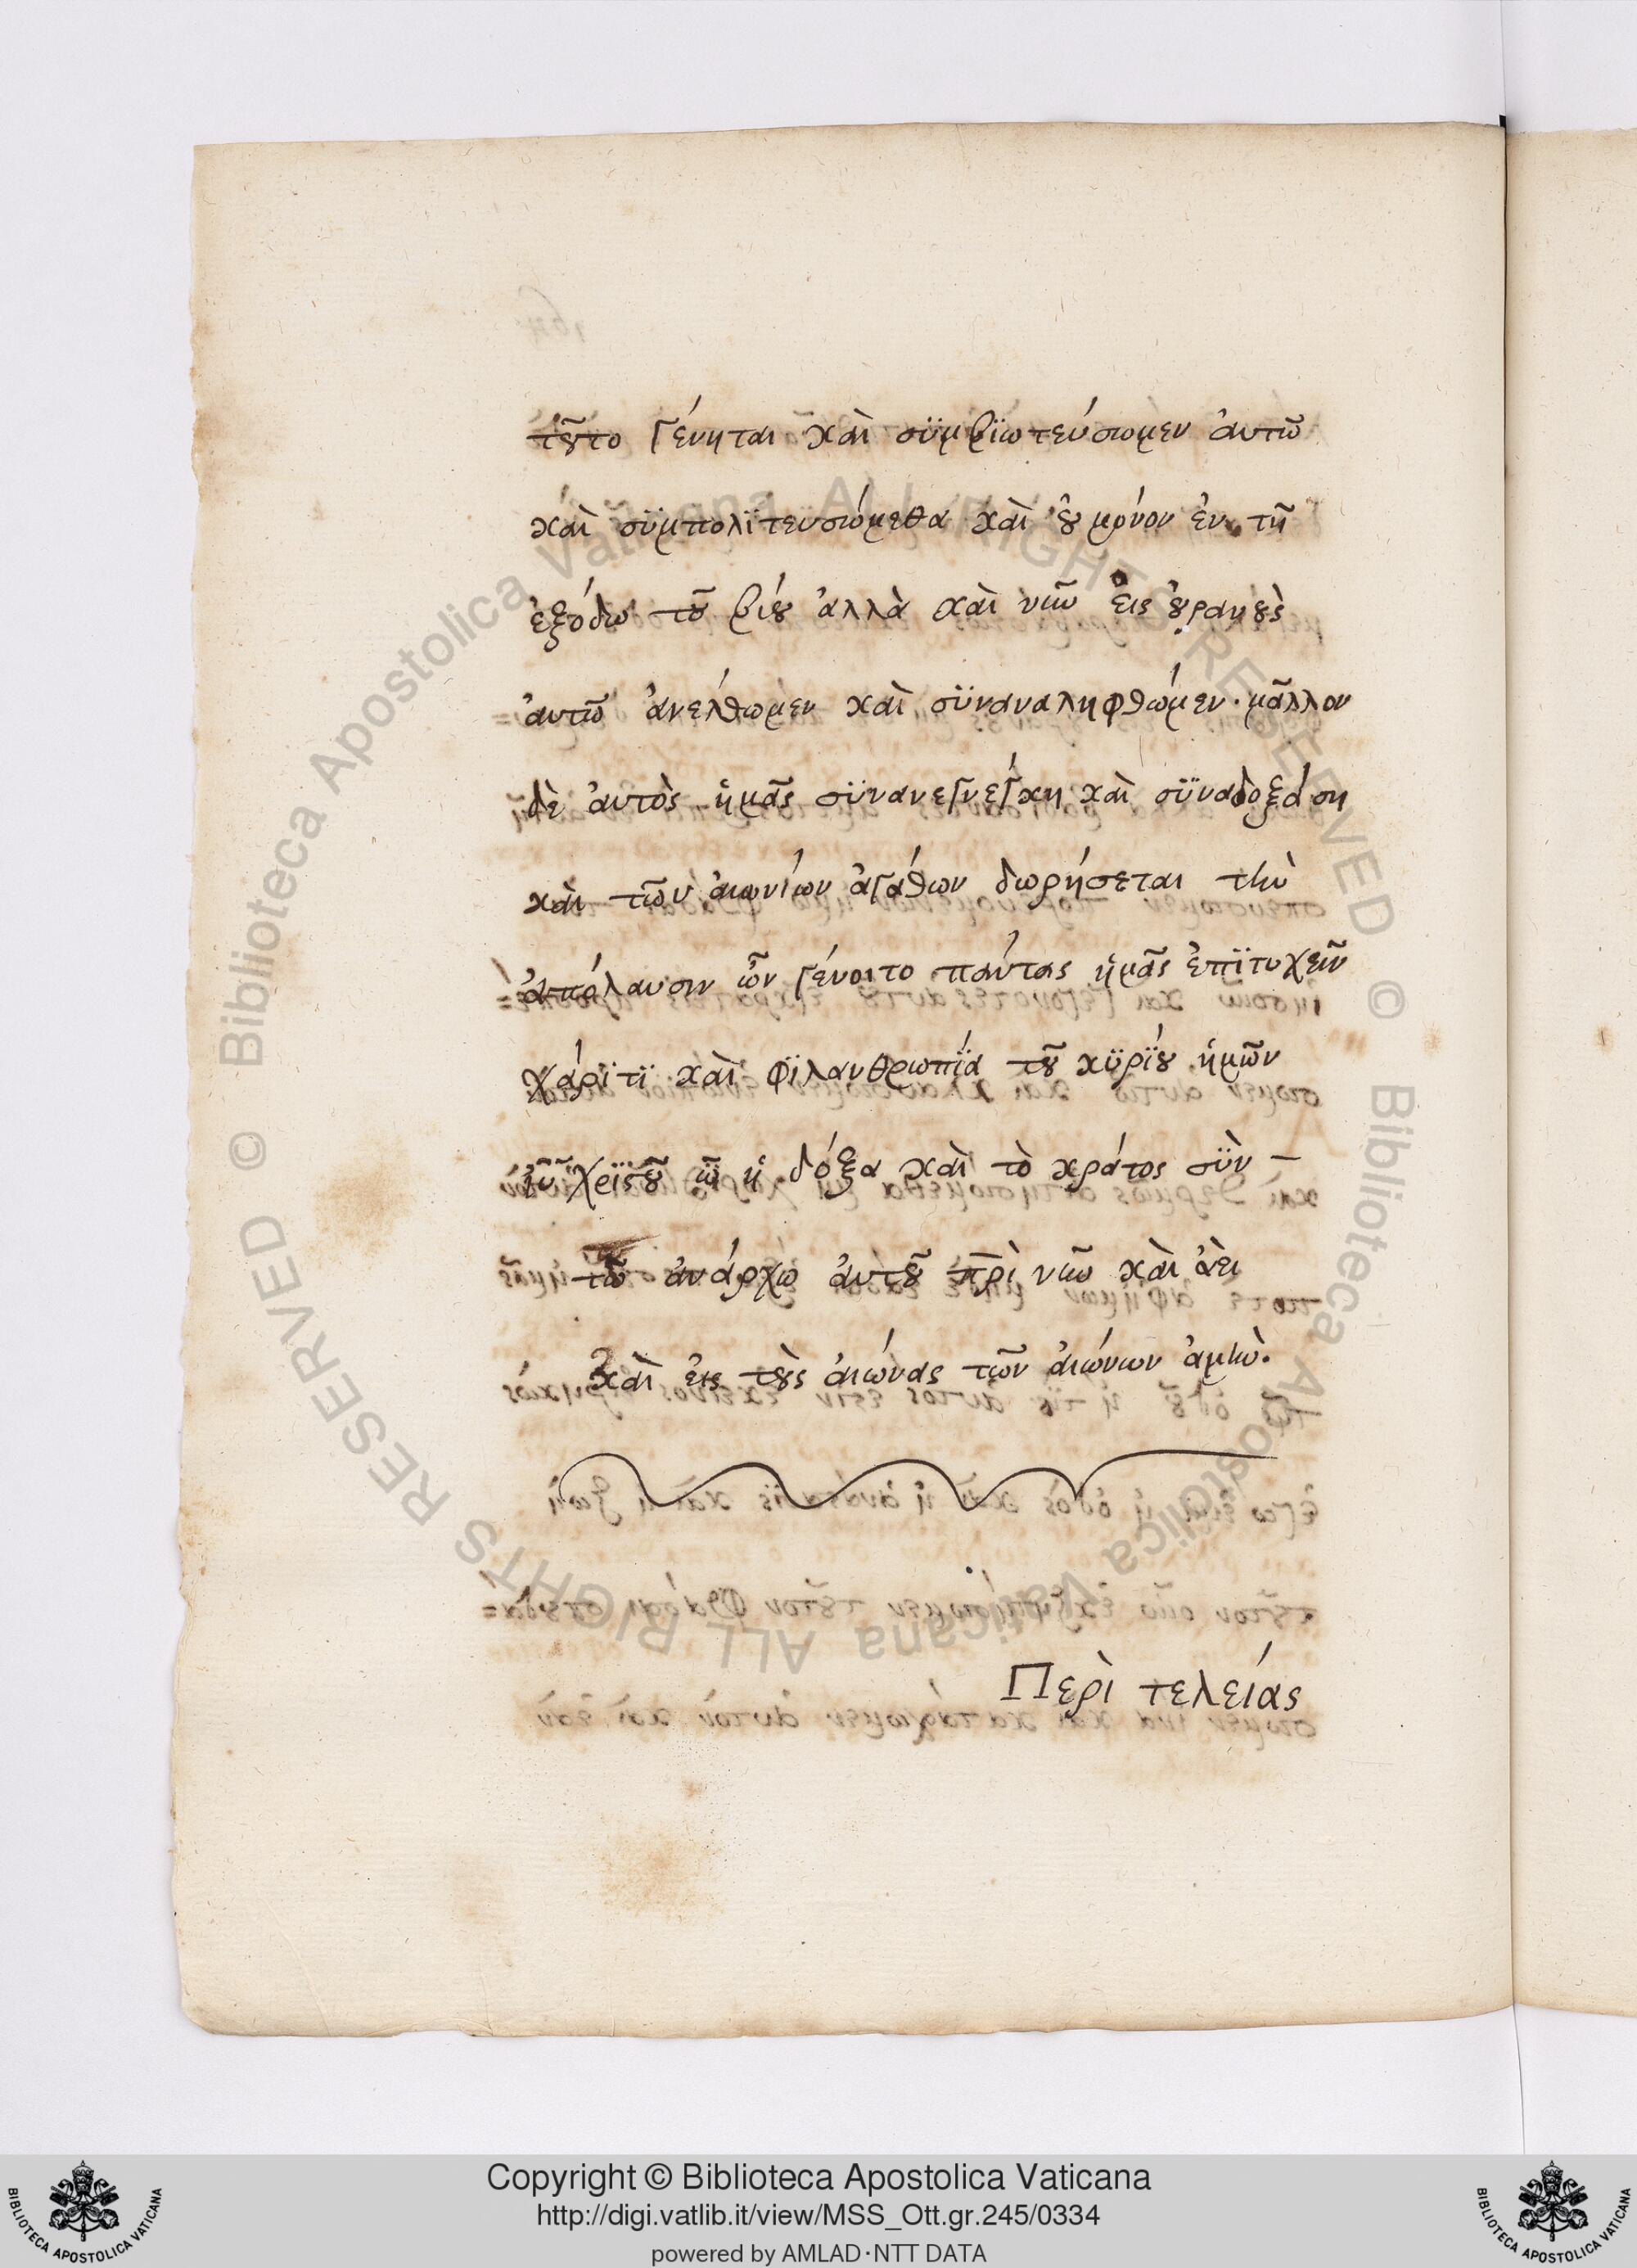 τοῦτο γένηται καὶ συμβϊωτεύσωμεν ἀυτῶ
καὶ σϋμπολϊτευσώμεθα καὶ ὀυ μόνον ἐν τῆ
ἐξόδω τοῦ βίου ἀλλὰ καὶ νῦν ἐις ὀυρανοὺς
ἀυτῶ ἀνελθωμεν καὶ σϋναναληφθώμεν· μᾶλλον
δὲ ἀυτὸς ἡμᾶς σϋνανεγνεγκη καὶ σϋναδοξάση
καὶ τῶν ἀιωνίων ἀγάθων δωρήσεται τὴν
ἀπόλαυσιν ὧν γένοιτο πάντας ἡμᾶς ἐπϊτυχεῖν
χάρϊτϊ καὶ φϊλανθρωπϊά τοῦ κϋρϊου ἡμῶν
ἰῦ χρϊστοῦ ὧ ἡ δόξα καὶ τὸ κράτος σϋν –
τῶ ἀνάρχω ἀυτοῦ πρὶ νῦν καὶ ἀεὶ
καὶ ἐις τοὺς ἀιώνας τῶν ἀιώνων ἀμὴν.
Περὶ τελείας
Copyright © Biblioteca Apostolica Vaticana
http://digi.vatlib.it/view/MSS_Ott.gr.245/0334
powered by AMLAD·NTT DATA